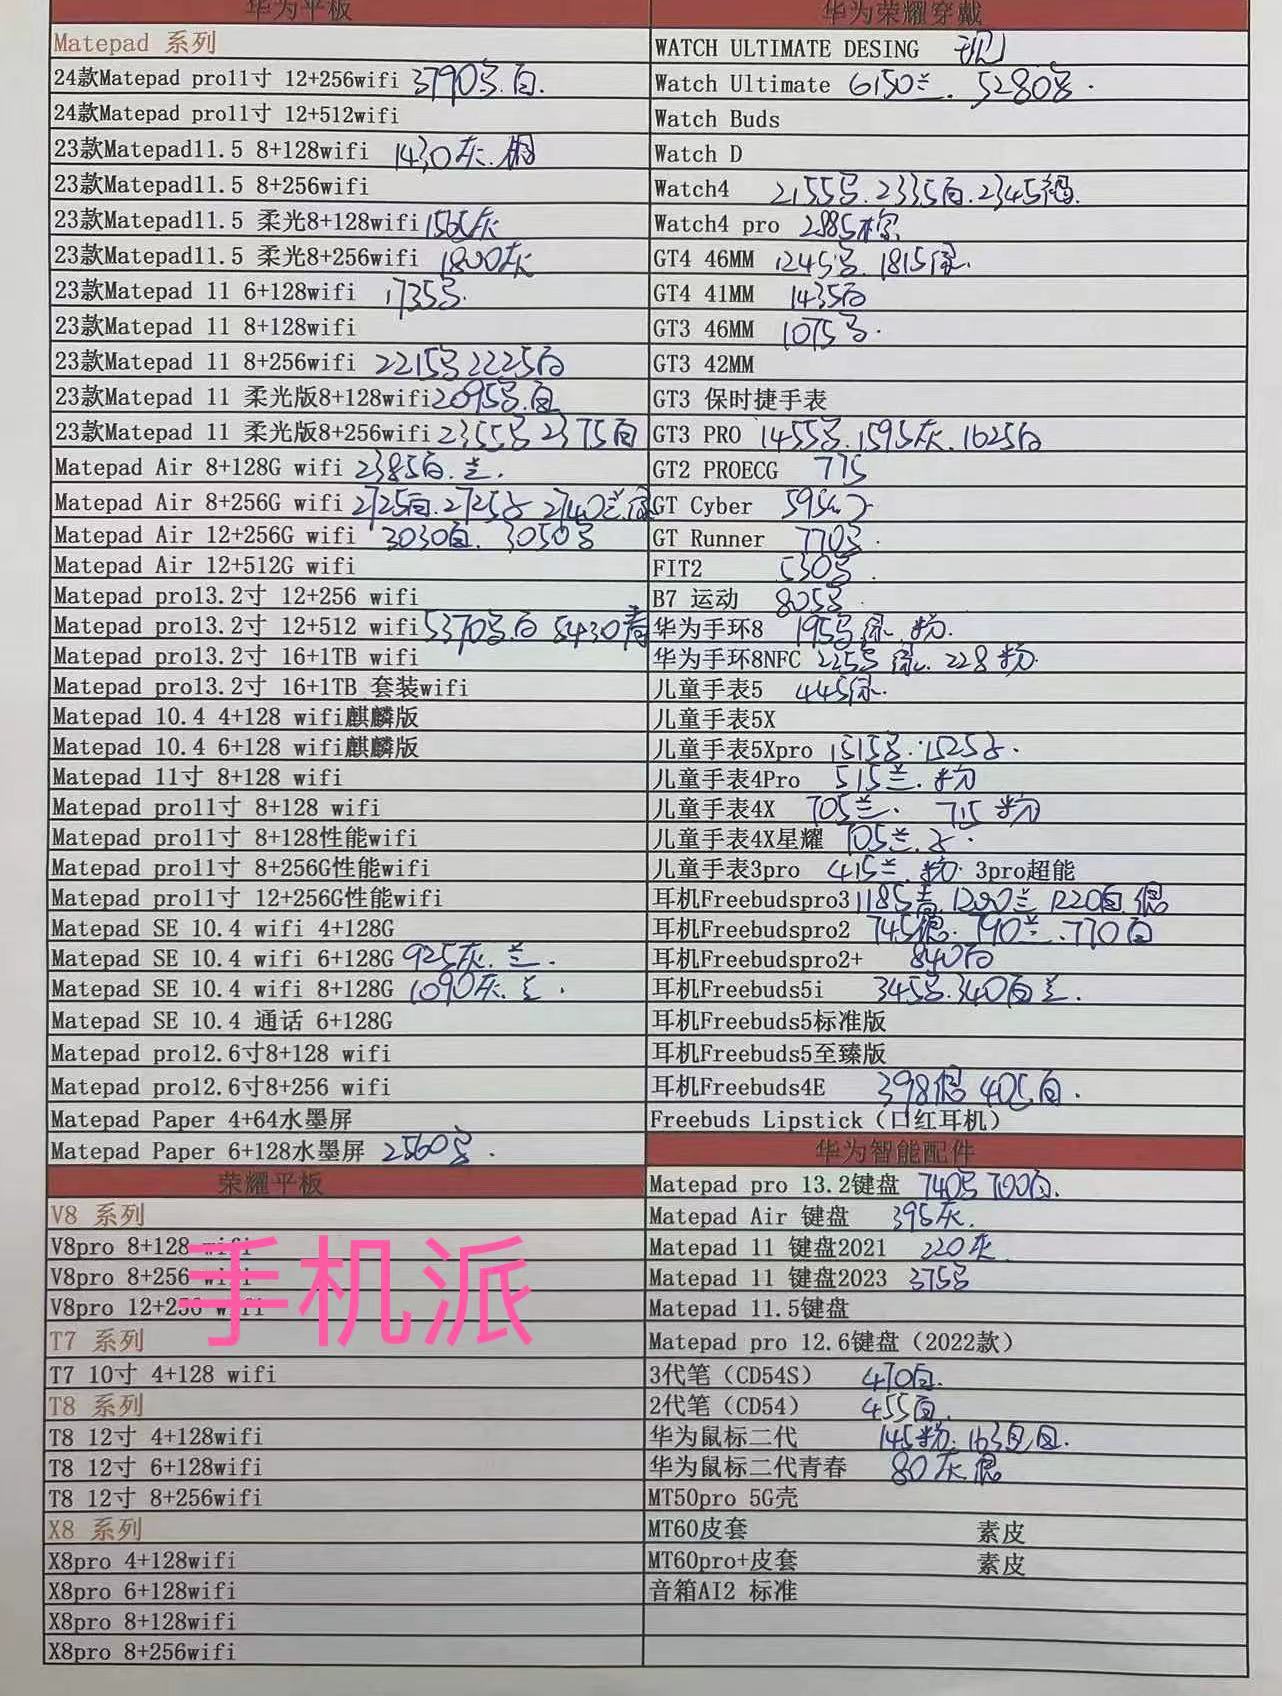 华为平板
Matepad 系列
24款Matepad pro11寸 12+256wifi 3790 白.
24款Matepad pro11寸 12+512wifi
23款Matepad11.5 8+128wifi 1430灰.
23款Matepad11.5 8+256wifi
23款Matepad11.5 柔光8+128wifi 1565灰
23款Matepad11.5 柔光8+256wifi 1800灰
23款Matepad 11 6+128wifi 1735
23款Matepad 11 8+128wifi
23款Matepad 11 8+256wifi 2215 2225白
23款Matepad 11 柔光版8+128wifi 2095 白
23款Matepad 11 柔光版8+256wifi 2355 2375白
Matepad Air 8+128G wifi 2385白.兰.
Matepad Air 8+256G wifi 2725白.2725 2740兰
Matepad Air 12+256G wifi 3030白. 3050
Matepad Air 12+512G wifi
Matepad pro13.2寸 12+256 wifi
Matepad pro13.2寸 12+512 wifi 5370 白 5430青
Matepad pro13.2寸 16+1TB wifi
Matepad pro13.2寸 16+1TB 套装wifi
Matepad 10.4 4+128 wifi麒麟版
Matepad 10.4 6+128 wifi麒麟版
Matepad 11寸 8+128 wifi
Matepad pro11寸 8+128 wifi
Matepad pro11寸 8+128性能wifi
Matepad pro11寸 8+256G性能wifi
Matepad pro11寸 12+256G性能wifi
Matepad SE 10.4 wifi 4+128G
Matepad SE 10.4 wifi 6+128G 925灰.兰.
Matepad SE 10.4 wifi 8+128G 1090灰.兰.
Matepad SE 10.4 通话 6+128G
Matepad pro12.6寸8+128 wifi
Matepad pro12.6寸8+256 wifi
Matepad Paper 4+64水墨屏
Matepad Paper 6+128水墨屏 2560
荣耀平板
V8 系列
V8pro 8+128 wifi
V8pro 8+256 wifi
V8pro 12+256 wifi
手机派
T7 系列
T7 10寸 4+128 wifi
T8 系列
T8 12寸 4+128wifi
T8 12寸 6+128wifi
T8 12寸 8+256wifi
X8 系列
X8pro 4+128wifi
X8pro 6+128wifi
X8pro 8+128wifi
X8pro 8+256wifi
华为荣耀穿戴
WATCH ULTIMATE DESING 现
Watch Ultimate 6150兰. 5280
Watch Buds
Watch D
Watch4 2155 2335白.2345
Watch4 pro 2885棕
GT4 46MM 1245 1815绿.
GT4 41MM 1435白
GT3 46MM 1075
GT3 42MM
GT3 保时捷手表
GT3 PRO 1455 1595灰.1625白
GT2 PROECG 775
GT Cyber 595
GT Runner 770
FIT2 530
B7 运动 805
华为手环8 195 绿.粉.
华为手环8NFC 225 绿. 228粉.
儿童手表5 445绿.
儿童手表5X
儿童手表5Xpro 1515 1525
儿童手表4Pro 515兰.粉
儿童手表4X 705兰. 715粉
儿童手表4X星耀 705兰.
儿童手表3pro 415兰.粉. 3pro超能
耳机Freebudspro3 1185青.1200兰 1220白.银
耳机Freebudspro2 745银.790兰.770白
耳机Freebudspro2+ 840白
耳机Freebuds5i 345 340白兰.
耳机Freebuds5标准版
耳机Freebuds5至臻版
耳机Freebuds4E 398银 405白.
Freebuds Lipstick（口红耳机）
华为智能配件
Matepad pro 13.2键盘 740 700白.
Matepad Air 键盘 395灰.
Matepad 11 键盘2021 220灰
Matepad 11 键盘2023 375
Matepad 11.5键盘
Matepad pro 12.6键盘（2022款）
3代笔（CD54S） 470白.
2代笔（CD54） 455白.
华为鼠标二代 145粉.
华为鼠标二代青春 80灰银
MT50pro 5G壳
MT60皮套 素皮
MT60pro+皮套 素皮
音箱AI2 标准